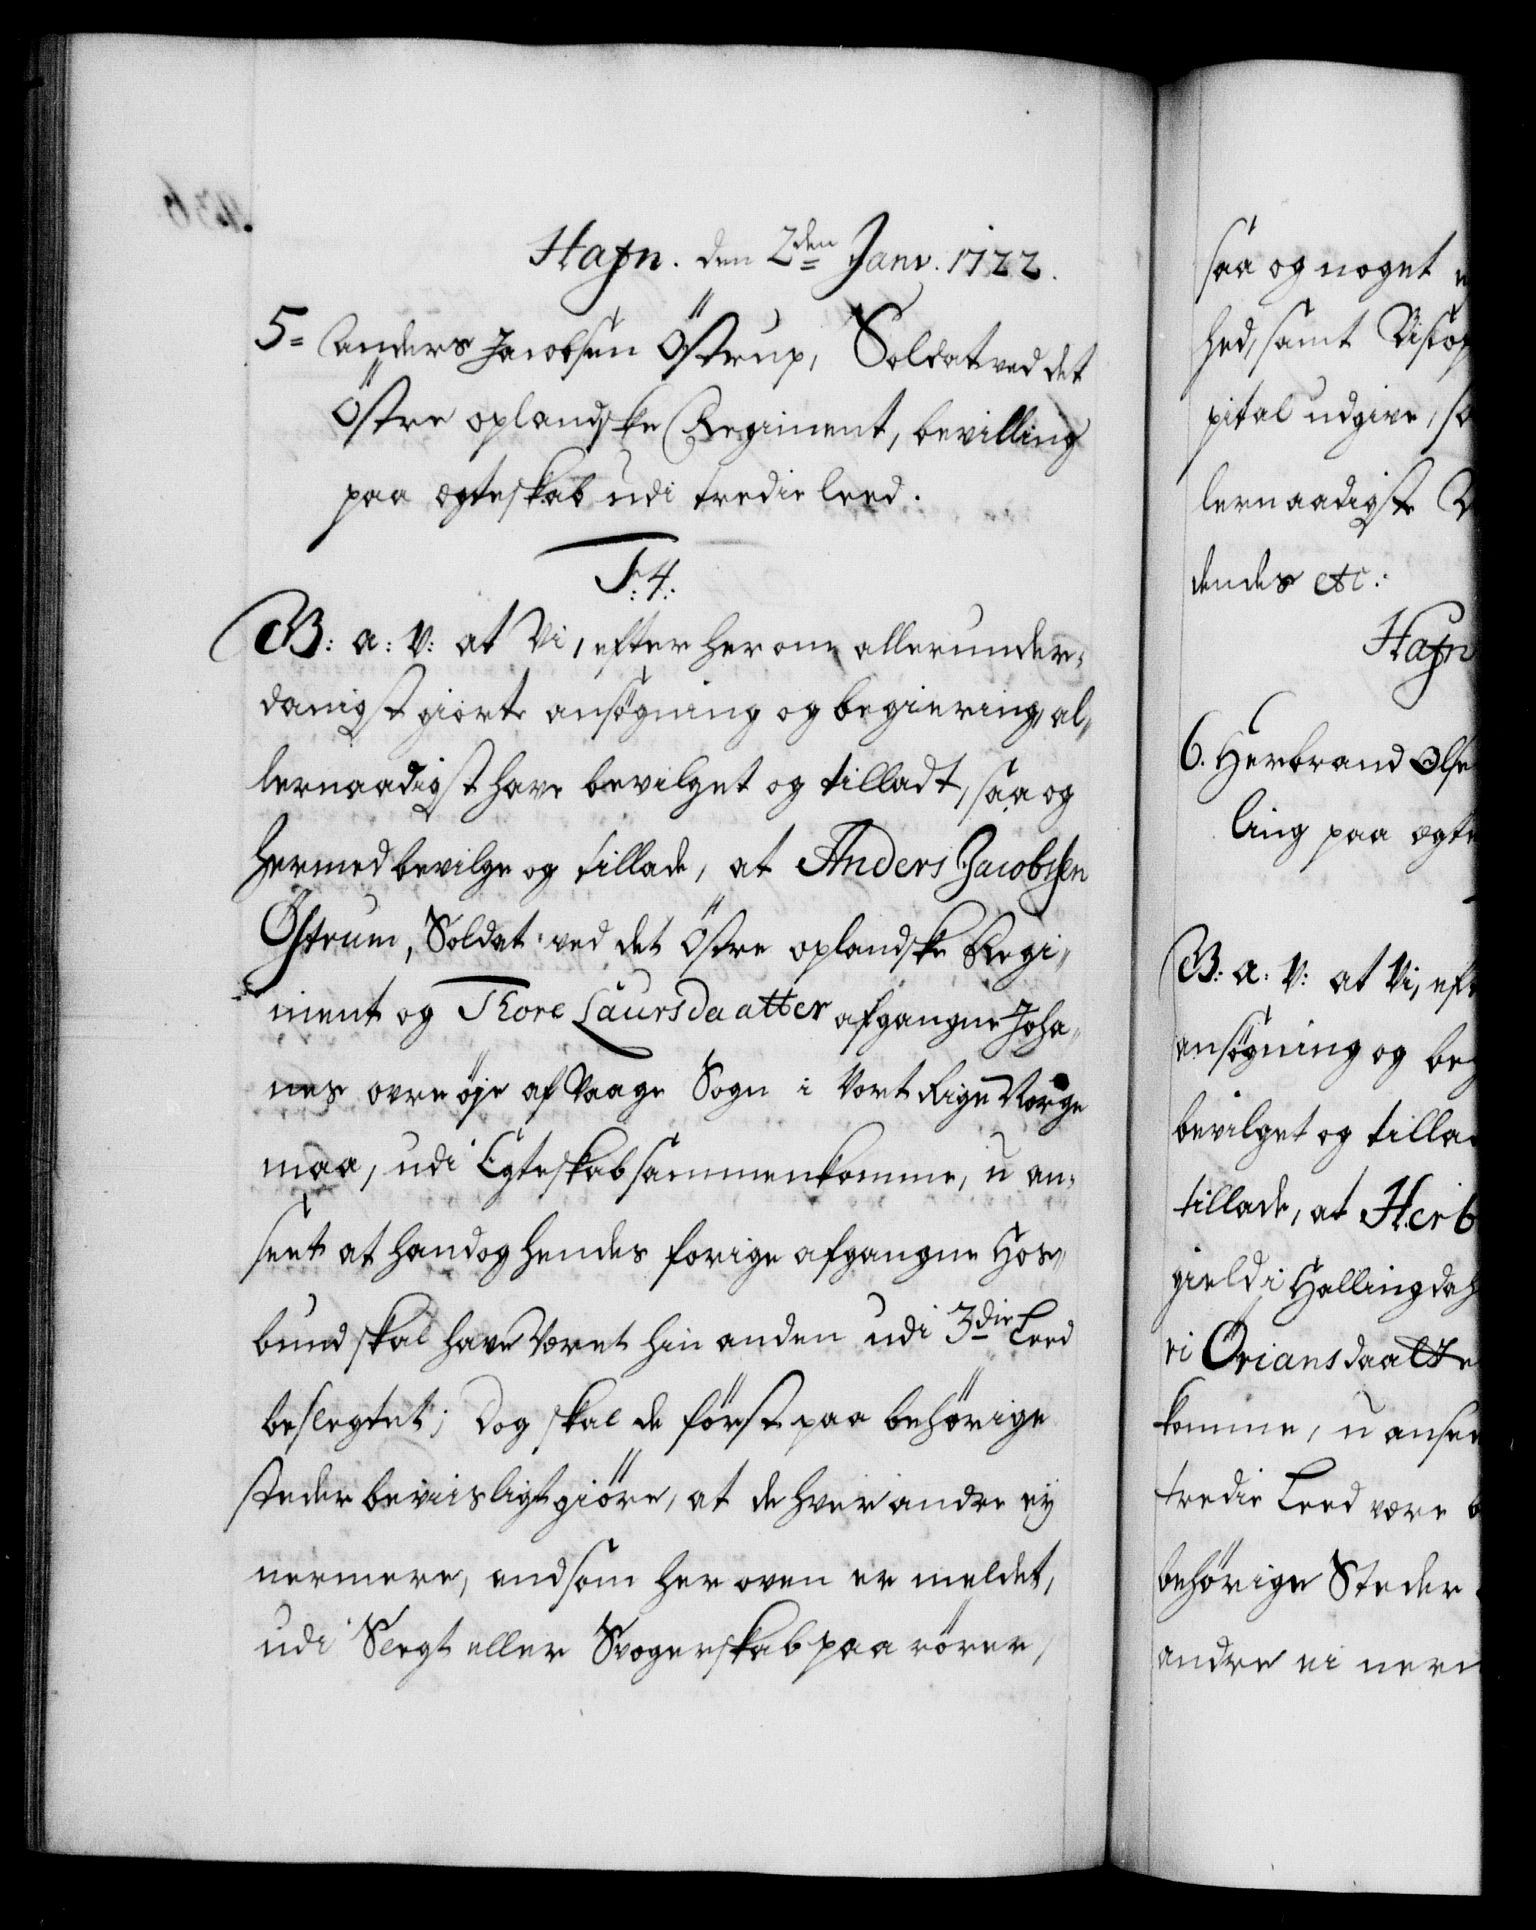 Hafn. den 2den Janv. 1722.
5= Anders Jacobsen Östrup, Soldat ved det
Östre oplandske Regiment, bevilling
paa egteskab udi tredie leed.
F:4:
G B: a: V: at Vi, efter herom allerunder-
danigst giorte ansøgning og begiering, al-
lernaadigst have bevilget og tilladt, saa og
hermed bevilge og tillade, at Anders Jacobsen
Østrum, Soldat ved det Östre oplandske Regi-
ment og Thore Laursdaatter afgangne Joha-
nes ovre öje af Vaage Sogn i Vort Rige Norge
maa, udi Egteskab sammenkomme, u an-
seet at hand og hendes forige afgangne Hos-
bund skal have Været hin anden udi 3die Leed
beslegtet; Dog skal de først paa behörige
steder beviisligt giöre, at de hver andre ey
nermere, end som her oven er meldet,
udi Slegt eller Svogerskab paa rörer,
saa og noget
hed, samt Bisco
pital udgive, so
lernaadigste
dendes etc:
Hafn
6. Herbrand Olse
ling paa egte
B: a: V: at Vi, eft
ansøgning og beg
bevilget og tillad
tillade, at Herb
gield i Hallingdah
ri Öriansdaatte
komme, u anse
tredie Leed være b
behörige Steder
andre ei nerm